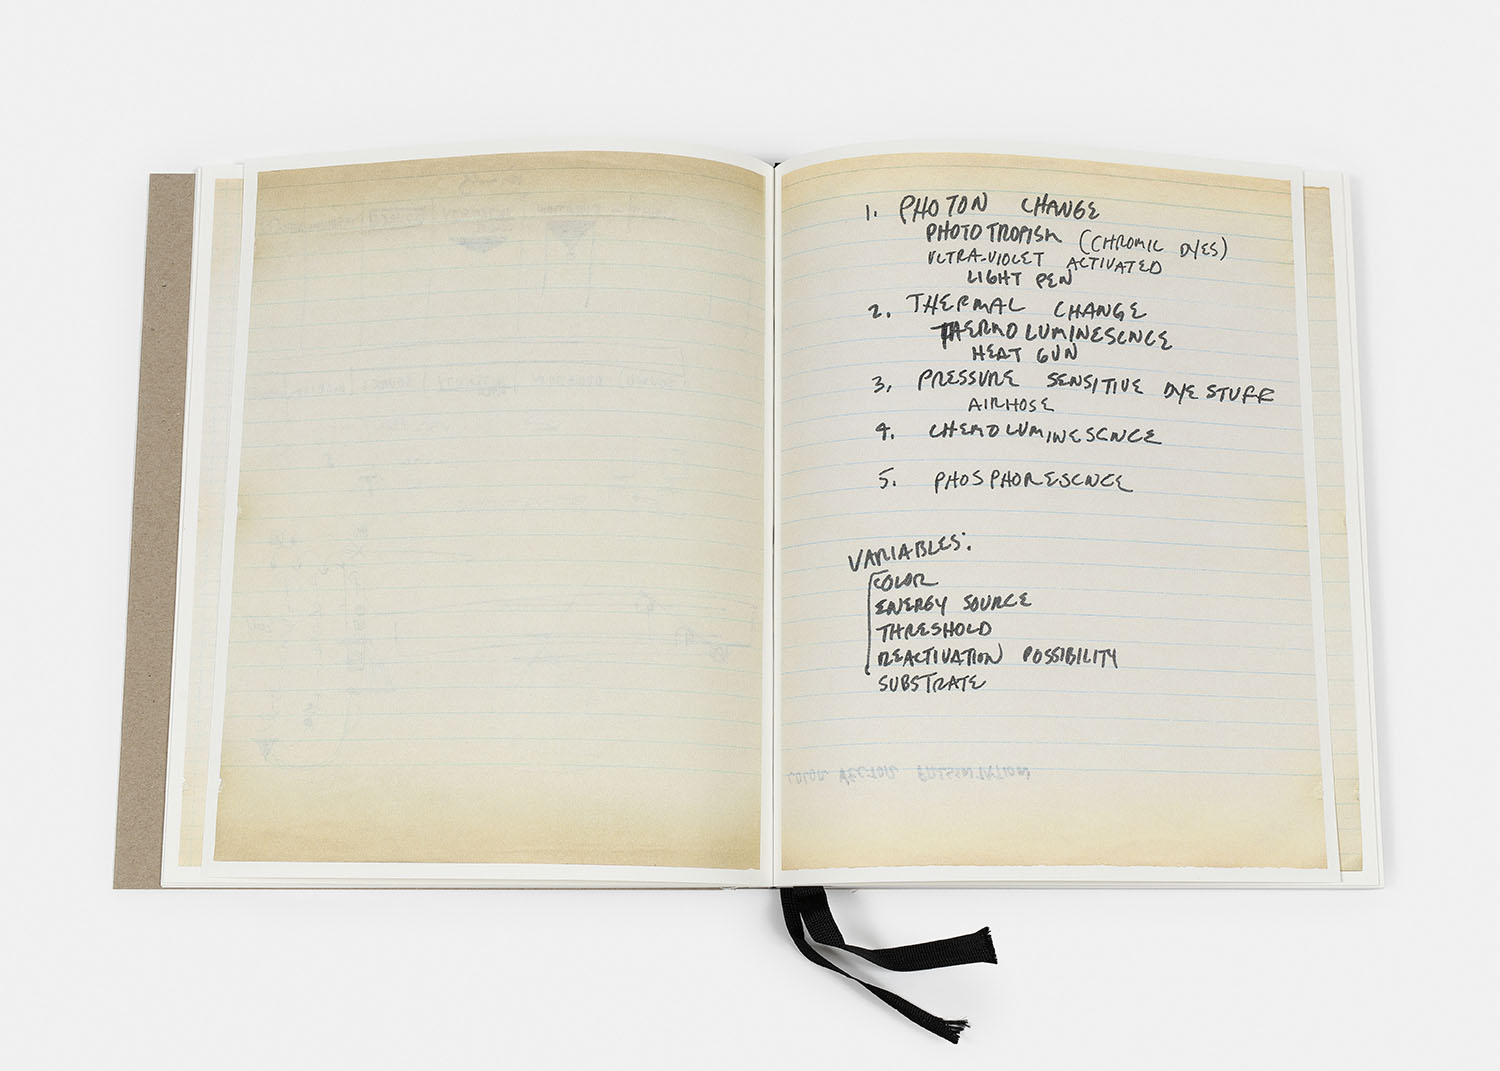 1. PHOTON CHANGE
PHOTOTROPISM (CHROMIC DYES)
ULTRA-VIOLET ACTIVATED
LIGHT PEN
2. THERMAL CHANGE
THERMOLUMINESCNCE
HEAT GUN
3. PRESSURE SENSITIVE DYESTUFF
AIRHOSE
4. CHEMOLUMINESCNCE
5. PHOSPHORESCNCE
VARIABLES:
COLOR
ENERGY SOURCE
THRESHOLD
REACTIVATION POSSIBILITY
SUBSTRATE
COLOR VECTOR PRESENTATION